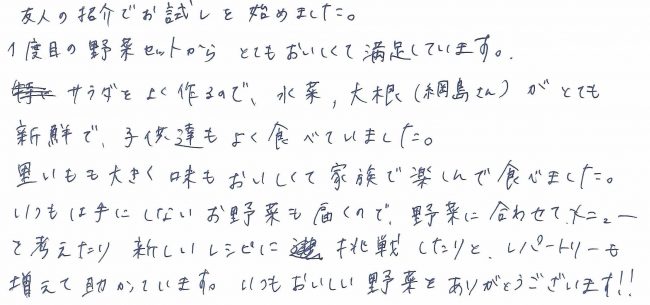 友人の紹介でお試しを始めました。
1度目の野菜セットから とてもおいしくて満足しています。
サラダをよく作るので、水菜，大根（綱島さん）がとても
新鮮で、子供達もよく食べていました。
里いもも大きく味もおいしくて家族で楽しんで食べました。
いつもは手にしないお野菜も届くので、野菜に合わせてメニュー
を考えたり 新しいレシピに 挑戦したりと、レパートリーも
増えて助かっています。いつもおいしい野菜をありがとうございます!!